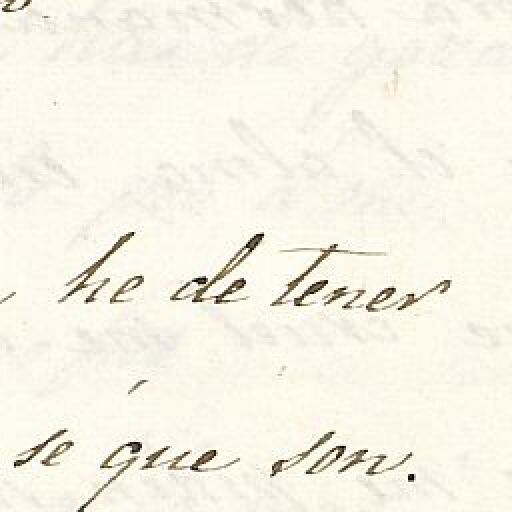 he de tener
sé que son.